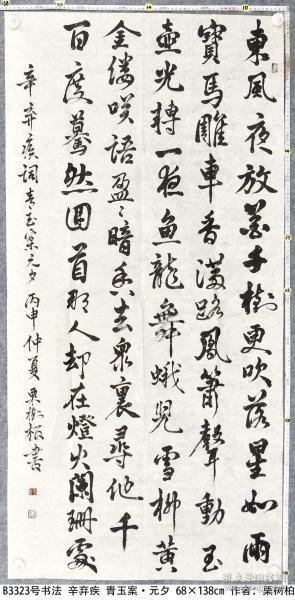 東風夜放花千樹更吹落星如雨
寶馬雕車香滿路鳳簫聲動玉
壺光轉一夜魚龍舞蛾兒雪柳黃
金縷咲語盈〻暗香去衆裏尋他千
百度驀然回首那人却在燈火闌珊處
辛弃疾詞青玉案元夕丙申仲夏栗樹柏書
B3323号书法 辛弃疾 青玉案·元夕 68×138cm 作者：栗树柏